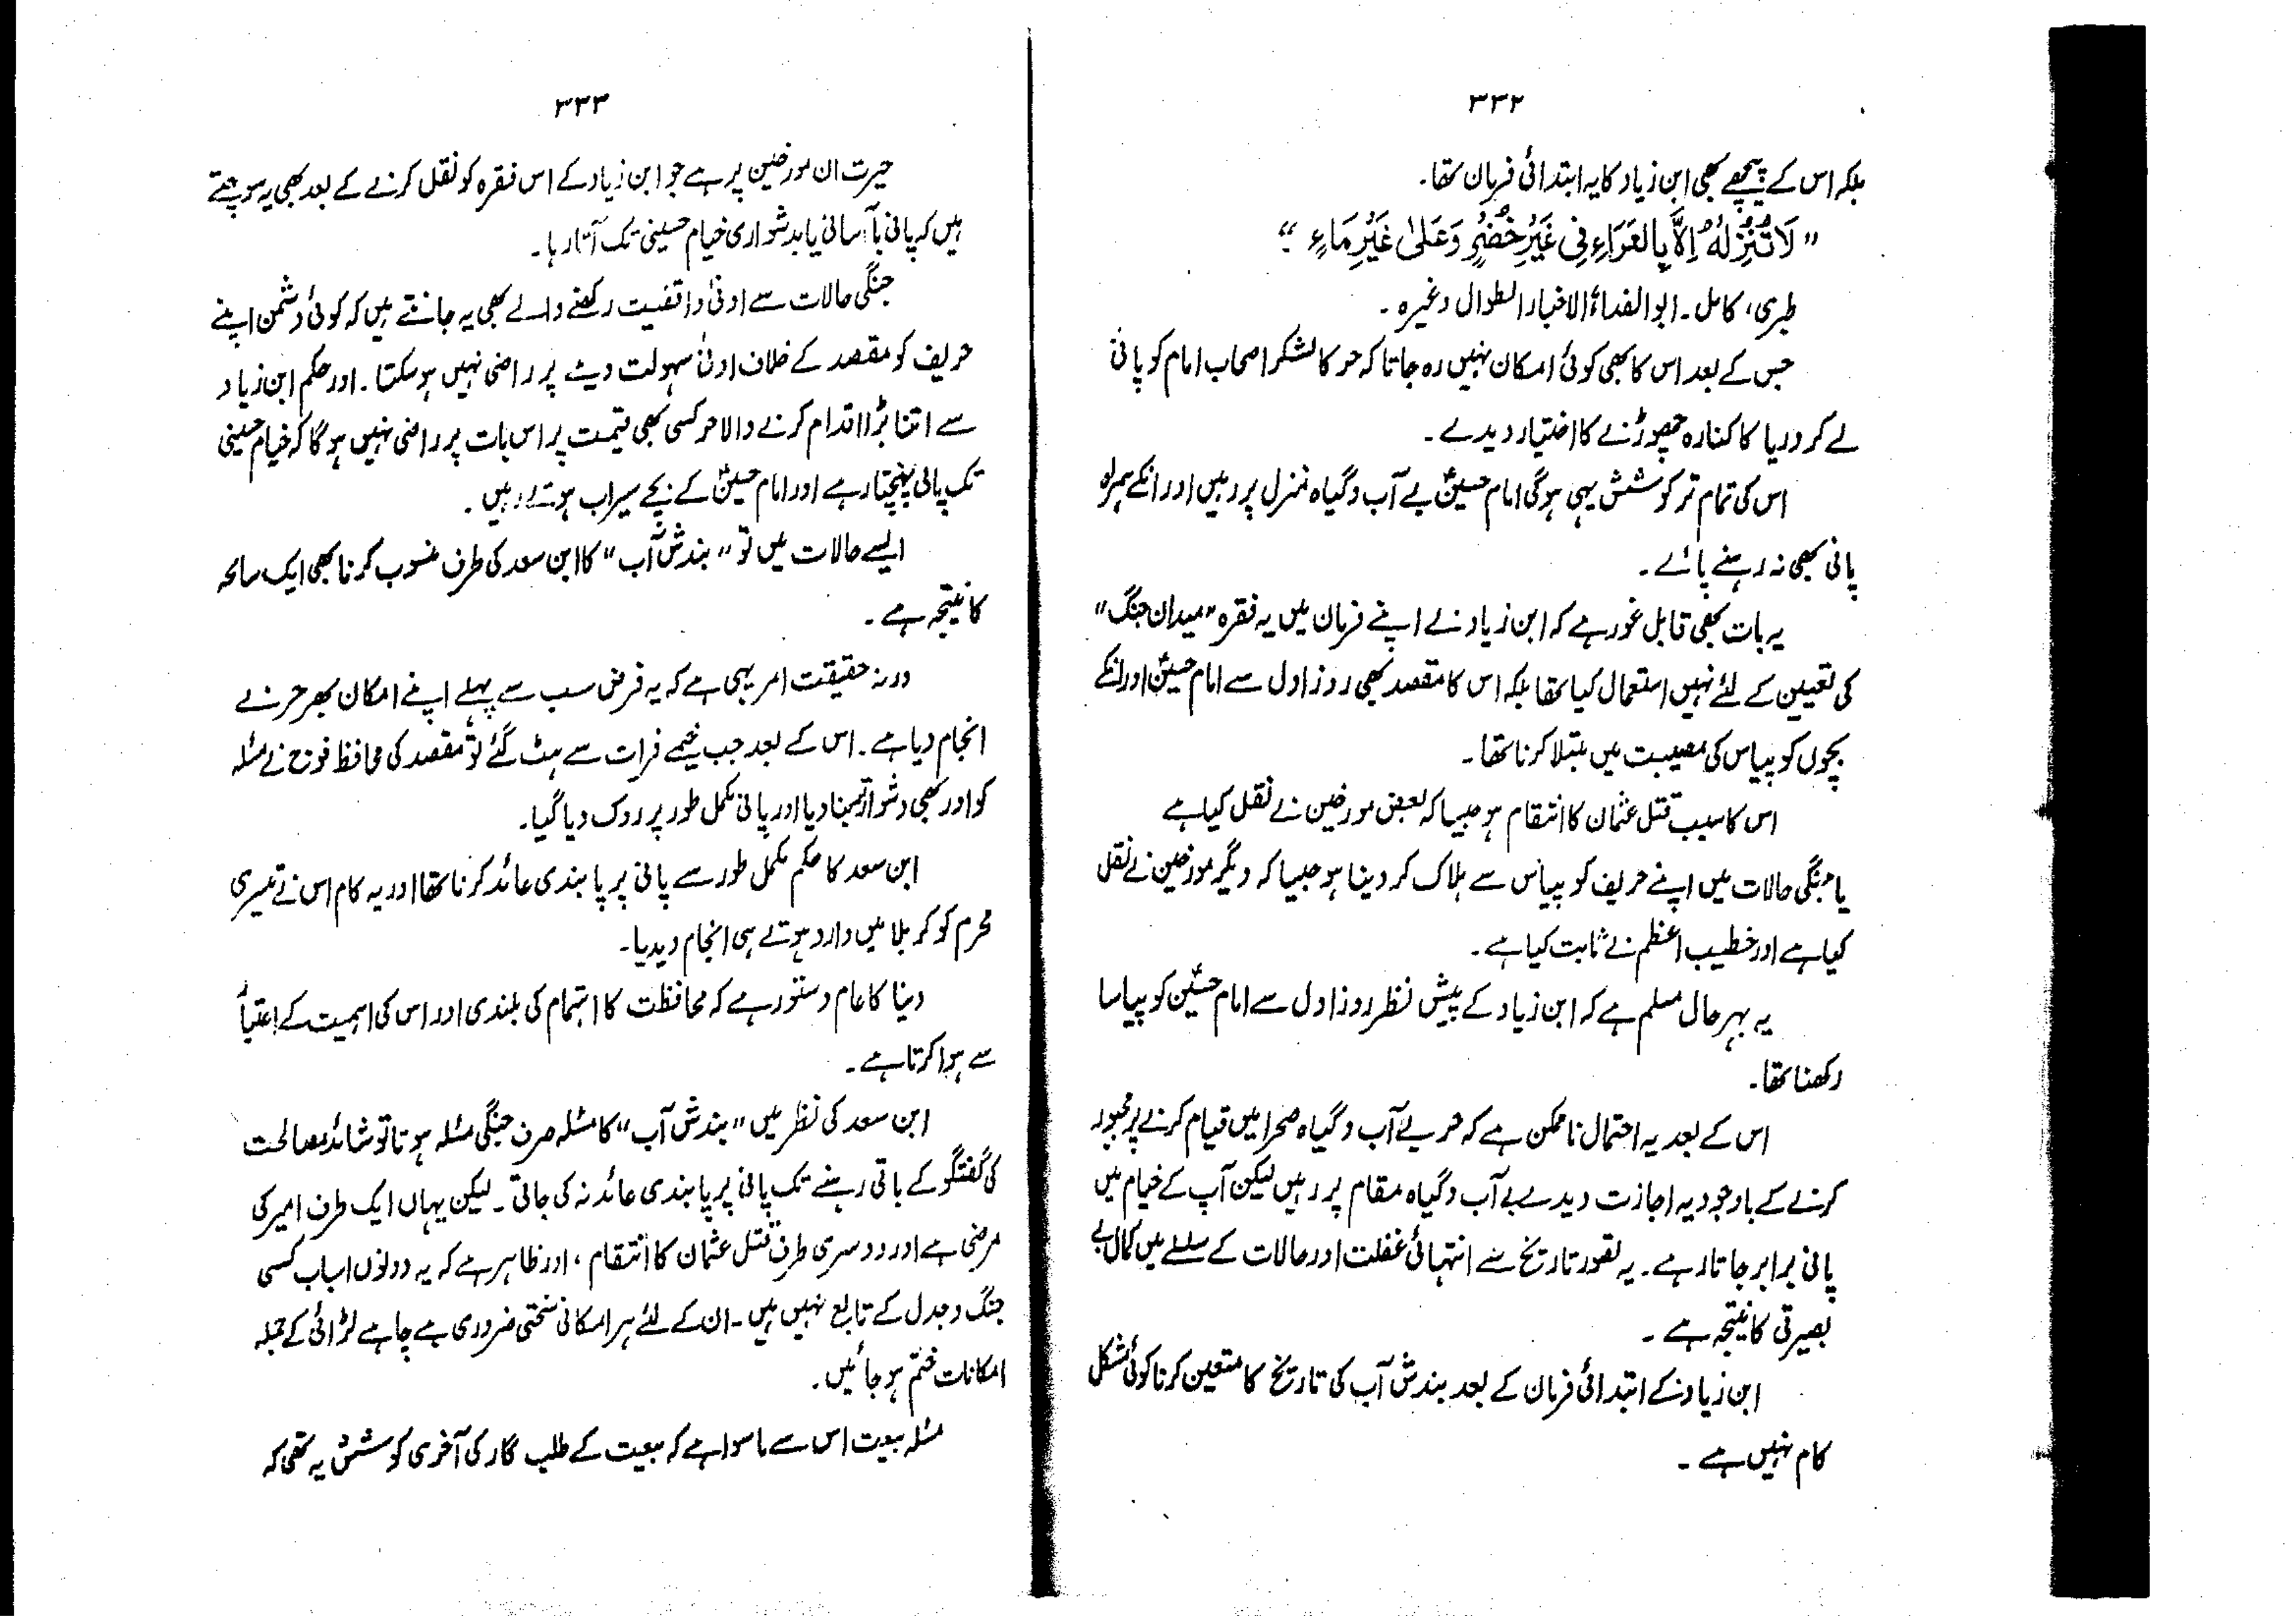 ۳۳۲
بلکہ اس کے پیچھے بھی ابن زیاد کا یہ ابتدائی فرمان تھا۔
”لَا تُنْزِلْهُ اِلَّا بِالْعَرَاءِ فِی غَیْرِ خُضْرٍ وَعَلٰی غَیْرِ مَاءٍ“
طبری، کامل۔ ابوالفداء، الاخبار الطوال وغیرہ۔
جس کے بعد اس کا بھی کوئی امکان نہیں رہ جاتا کہ حر کا لشکر اصحاب امام کو پانی
لے کر دریا کا کنارہ چھوڑنے کا اختیار دیدے۔
اس کی تمام تر کوشش یہی ہوگی امام حسینؑ بے آب و گیاہ منزل پر رہیں اور انکے ہمراہ
پانی بھی نہ رہنے پائے۔
یہ بات بھی قابل غور ہے کہ ابن زیاد نے اپنے فرمان میں یہ فقرہ ”میدان جنگ“
کی تعیین کے لئے نہیں استعمال کیا تھا بلکہ اس کا مقصد بھی روز اول سے امام حسینؑ اور انکے
بچوں کو پیاس کی مصیبت میں مبتلا کرنا تھا۔
اس کا سبب قتل عثمان کا انتقام ہو جیسا کہ بعض مورخین نے نقل کیا ہے
یا جنگی حالات میں اپنے حریف کو پیاس سے ہلاک کر دینا ہو جیسا کہ دیگر مورخین نے نقل
کیا ہے اور خطیب اعظم نے ثابت کیا ہے۔
یہ بہر حال مسلم ہے کہ ابن زیاد کے پیش نظر روز اول سے امام حسینؑ کو پیاسا
رکھنا تھا۔
اس کے بعد یہ احتمال ناممکن ہے کہ حر بے آب و گیاہ صحرا میں قیام کرنے پر مجبور
کرنے کے باوجود یہ اجازت دیدے بے آب و گیاہ مقام پر رہیں لیکن آپ کے خیام میں
پانی برابر جاتا رہے۔ یہ تصور تاریخ سے انتہائی غفلت اور حالات کے سلسلے میں کمال بے
بصیرتی کا نتیجہ ہے۔
ابن زیاد کے ابتدائی فرمان کے بعد بندش آب کی تاریخ کا متعین کرنا کوئی مشکل
کام نہیں ہے۔
۳۳۳
حیرت ان مورخین پر ہے جو ابن زیاد کے اس فقرہ کو نقل کرنے کے بعد بھی یہ سوچتے
ہیں کہ پانی بآسانی یا بدشواری خیام حسینی تک آتا رہا۔
جنگی حالات سے ادنیٰ واقفیت رکھنے والے بھی یہ جانتے ہیں کہ کوئی دشمن اپنے
حریف کو مقصد کے خلاف ادنیٰ سہولت دینے پر راضی نہیں ہو سکتا۔ اور حکم ابن زیاد
سے اتنا بڑا اقدام کرنے والا حر کسی بھی قیمت پر اس بات پر راضی نہیں ہو گا کہ خیام حسینی
تک پانی پہنچتا رہے اور امام حسینؑ کے بچے سیراب ہوتے رہیں۔
ایسے حالات میں تو ”بندش آب“ کا ابن سعد کی طرف منسوب کرنا بھی ایک سانحہ
کا نتیجہ ہے۔
ورنہ حقیقت امر یہی ہے کہ یہ فرض سب سے پہلے اپنے امکان بھر حر نے
انجام دیا ہے۔ اس کے بعد جب خیمے فرات سے ہٹ گئے تو مقصد کی محافظ فوج نے مسئلہ
کو اور بھی دشوار تر بنا دیا اور پانی مکمل طور پر روک دیا گیا۔
ابن سعد کا حکم مکمل طور سے پانی پر پابندی عائد کرنا تھا اور یہ کام اس نے تیسری
محرم کو کربلا میں وارد ہوتے ہی انجام دیدیا۔
دنیا کا عام دستور ہے کہ محافظت کا اہتمام کی بلندی اور اس کی اہمیت کے اعتبار
سے ہوا کرتا ہے۔
ابن سعد کی نظر میں ”بندش آب“ کا مسئلہ صرف جنگی مسئلہ ہوتا تو شائد مصالحت
کی گفتگو کے باقی رہنے تک پانی پر پابندی عائد نہ کی جاتی۔ لیکن یہاں ایک طرف امیر کی
مرضی ہے اور دوسری طرف قتل عثمان کا انتقام، اور ظاہر ہے کہ یہ دونوں اسباب کسی
جنگ و جدل کے تابع نہیں ہیں۔ ان کے لئے ہر امکانی سختی ضروری ہے چاہے لڑائی کے جملہ
امکانات ختم ہو جائیں۔
مسئلہ بیعت اس سے ماسوا ہے کہ بیعت کے طلب گار کی آخری کوشش یہ تھی کہ